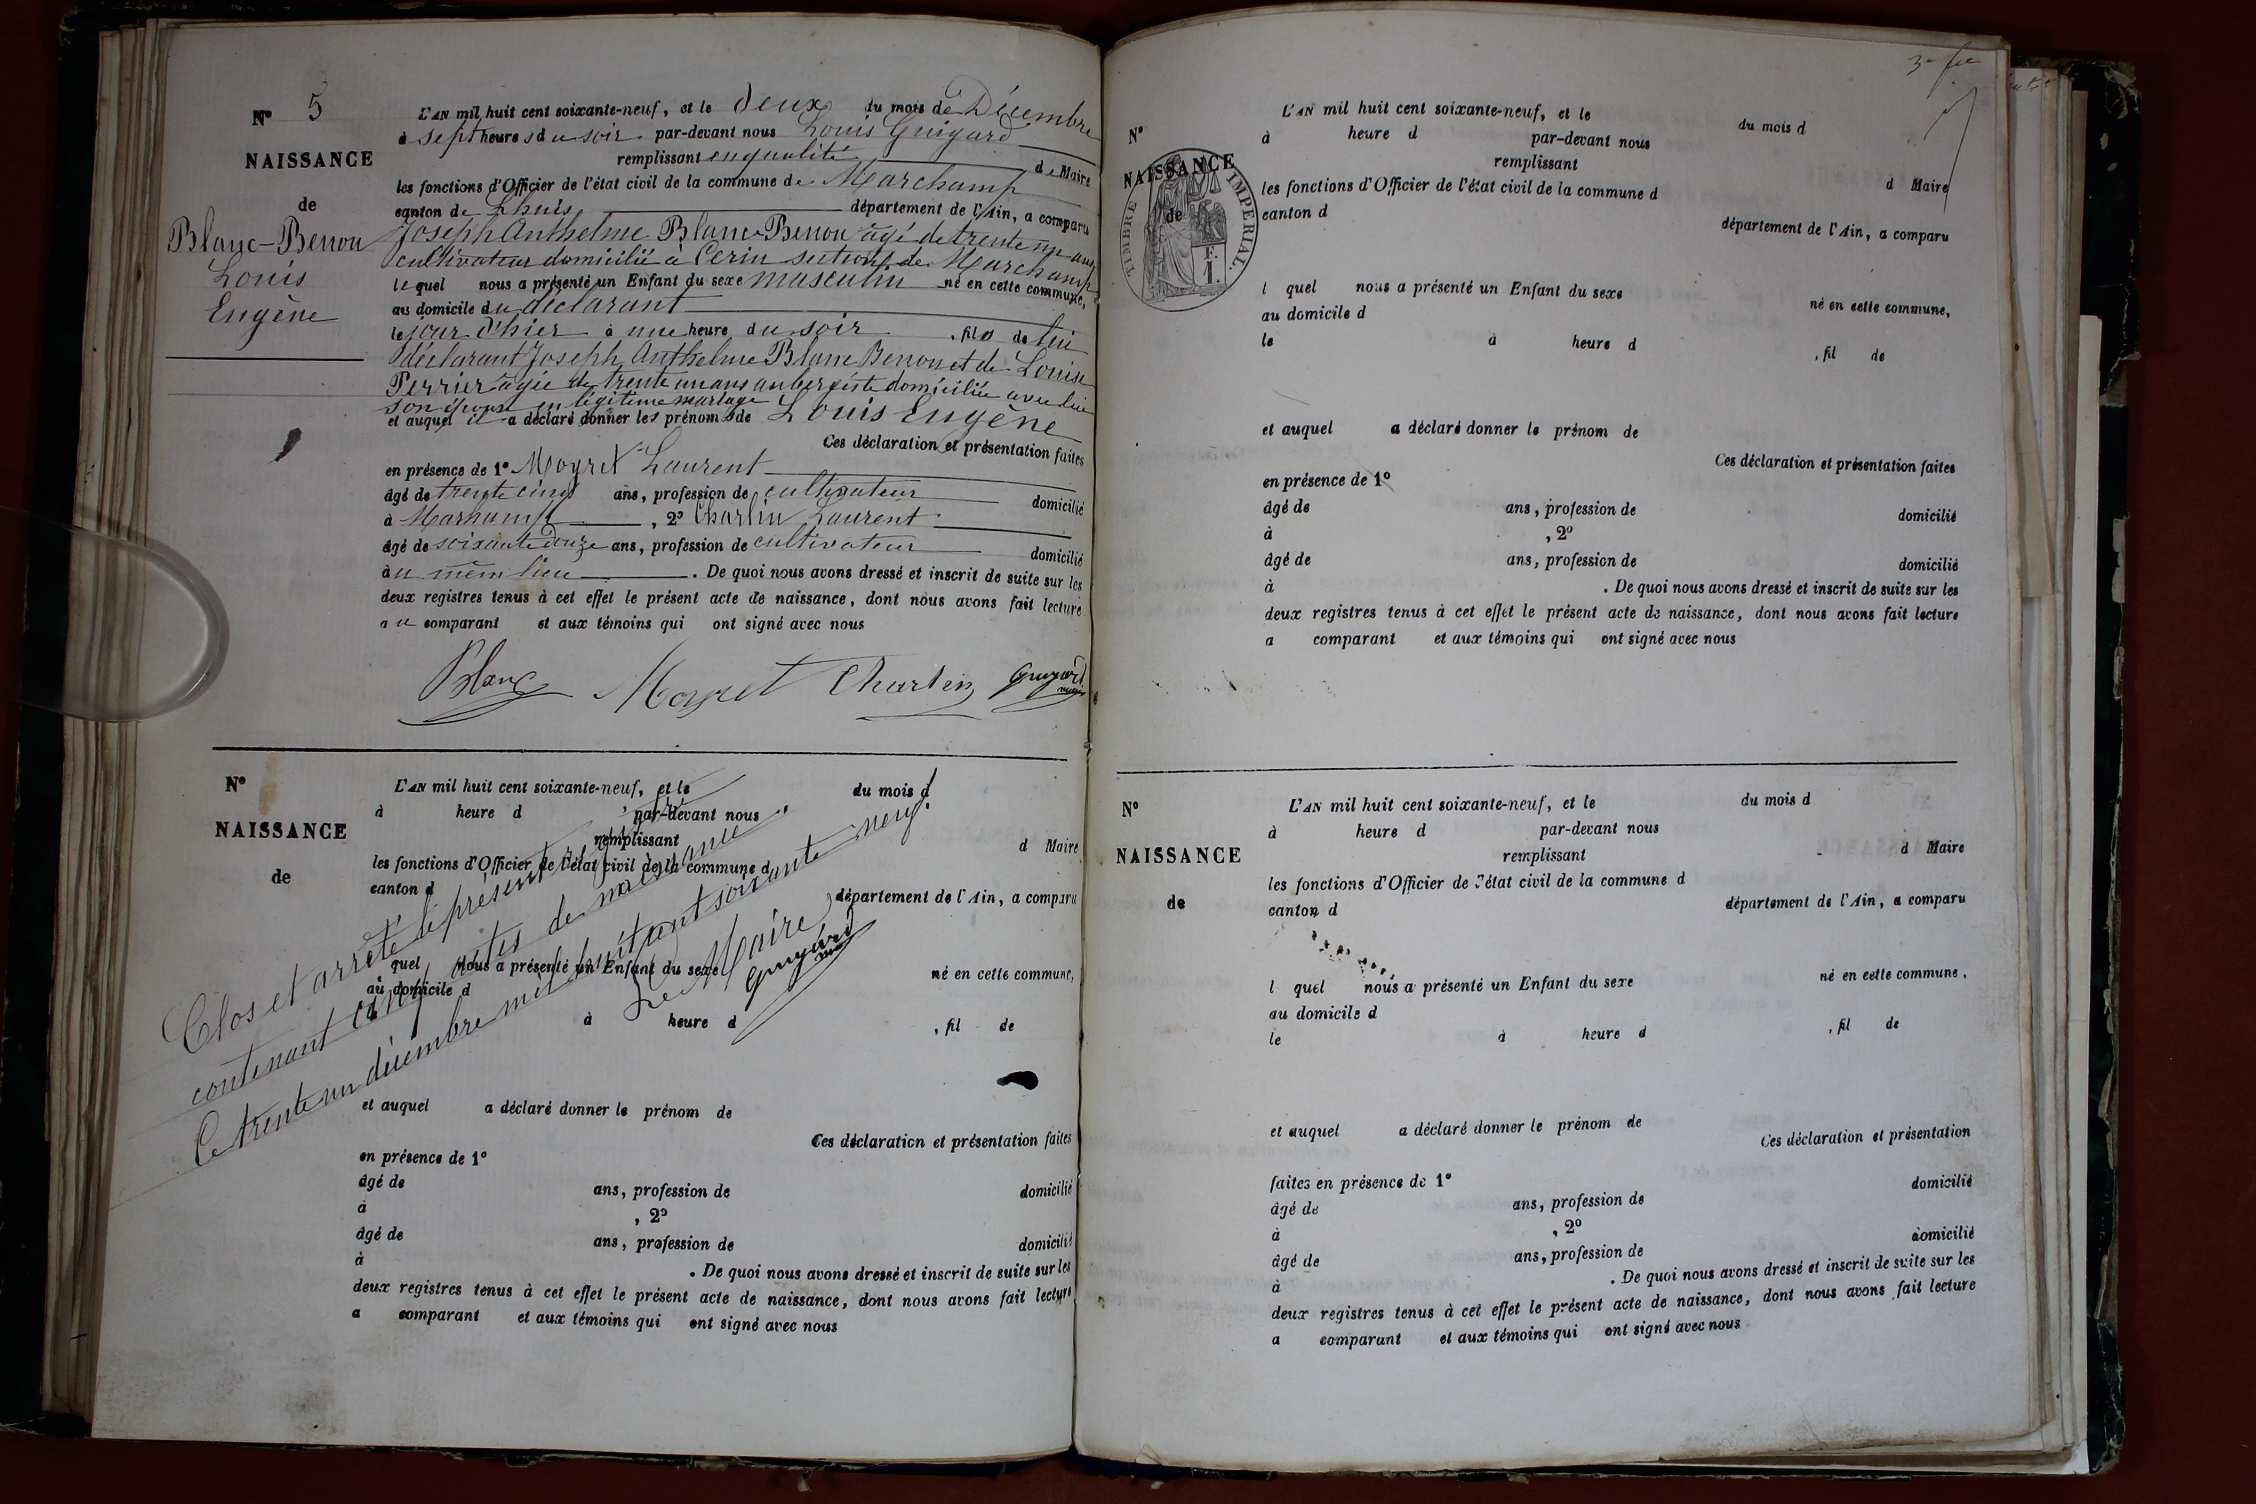 Nº 5
NAISSANCE
de
Blanc-Benon
Louis
Eugène
L'AN mil huit cent soixante-neuf, et le deux du mois de Décembre
à sept heures du soir par-devant nous Louis Guigard
remplissant en qualité de Maire
les fonctions d'Officier de l'état civil de la commune de Marchamp
canton de Lhuis département de l'Ain, a comparu
Joseph Anthelme Blanc-Benon âgé de trente un ans
cultivateur domicilié à Cerin section de Marchamp
lequel nous a présenté un Enfant du sexe masculin né en cette commune,
au domicile du déclarant
le jour d'hier à une heure du soir, fils de lui
déclarant Joseph Anthelme Blanc Benon et de Louise
Perrier âgée de trente un ans aubergiste domiciliée avec lui
son époux en légitime mariage
et auquel il a déclaré donner les prénoms de Louis Eugène
Ces déclaration et présentation faites
en présence de 1º Moyret Laurent
âgé de trente cinq ans, profession de cultivateur domicilié
à Marchamp, 2º Charlin Laurent
âgé de soixante douze ans, profession de cultivateur domicilié
au même lieu. De quoi nous avons dressé et inscrit de suite sur les
deux registres tenus à cet effet le présent acte de naissance, dont nous avons fait lecture
au comparant et aux témoins qui ont signé avec nous
Blanc Moyret Charlin Guigard
maire
Nº
NAISSANCE
de
L'AN mil huit cent soixante-neuf, et le du mois d
à heure d par-devant nous
remplissant
d Maire
les fonctions d'Officier de l'état civil de la commune d
canton d
département de l'Ain, a comparu
quel nous a présenté un Enfant du sexe né en cette commune,
au domicile d
à heure d , fil de
Clos et arrêté le présent registre
contenant cinq actes de naissance.
Ce trente un décembre mil huit cent soixante neuf.
Le Maire
Guigard
et auquel a déclaré donner le prénom de
Ces déclaration et présentation faites
en présence de 1º
âgé de ans, profession de domicilié
à , 2º
âgé de ans, profession de domicilié
à . De quoi nous avons dressé et inscrit de suite sur les
deux registres tenus à cet effet le présent acte de naissance, dont nous avons fait lecture
a comparant et aux témoins qui ont signé avec nous
Nº
NAISSANCE
de
TIMBRE IMPERIAL.
F.
1.
L'AN mil huit cent soixante-neuf, et le du mois d
à heure d par-devant nous
remplissant
d Maire
les fonctions d'Officier de l'état civil de la commune d
canton d
département de l'Ain, a comparu
l quel nous a présenté un Enfant du sexe né en cette commune,
au domicile d
le à heure d , fil de
et auquel a déclaré donner le prénom de
Ces déclaration et présentation faites
en présence de 1º
âgé de ans, profession de domicilié
à , 2º
âgé de ans, profession de domicilié
à . De quoi nous avons dressé et inscrit de suite sur les
deux registres tenus à cet effet le présent acte de naissance, dont nous avons fait lecture
a comparant et aux témoins qui ont signé avec nous
Nº
NAISSANCE
de
L'AN mil huit cent soixante-neuf, et le du mois d
à heure d par-devant nous
remplissant d Maire
les fonctions d'Officier de l'état civil de la commune d
canton d département de l'Ain, a comparu
l quel nous a présenté un Enfant du sexe né en cette commune,
au domicile d
le à heure d , fil de
et auquel a déclaré donner le prénom de
Ces déclaration et présentation
faites en présence de 1º domicilié
âgé de ans, profession de
à , 2º domicilié
âgé de ans, profession de
à . De quoi nous avons dressé et inscrit de suite sur les
deux registres tenus à cet effet le présent acte de naissance, dont nous avons fait lecture
a comparant et aux témoins qui ont signé avec nous